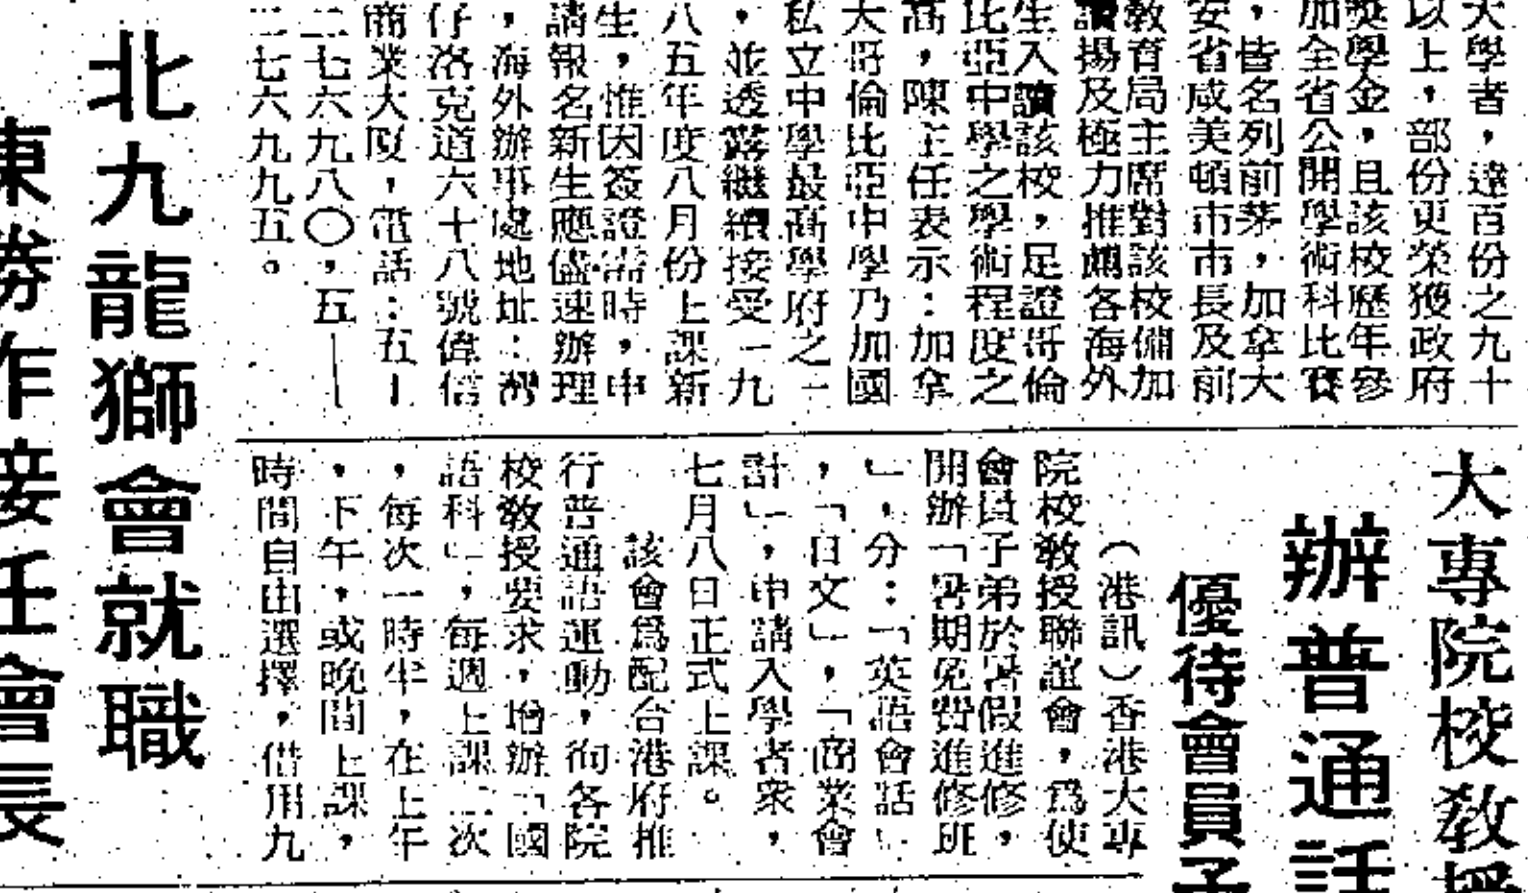 大學者，遠百份之九十
以上，部份更榮獲政府
獎學金，且該校歷年參
加全省公開學術科比賽
，皆名列前茅，加拿大
安省咸美頓市市長及前
教育局主席對該校備加
讚揚及極力推薦各海外
生入讀該校，足證哥倫
比亞中學之學術程度之
高，陳主任表示：加拿
大哥倫比亞中學乃加國
私立中學最高學府之一
，並透露繼續接受一九
八五年度八月份上課新
生，惟因簽證需時，申
請報名新生應儘速辦理
，海外辦事處地址：灣
仔洛克道六十八號偉信
商業大廈，電話：五—
二七六九八〇，五—
二七六九九五。
大專院校敎授
辦普通話
優待會員子
（港訊）香港大專
院校敎授聯誼會，爲使
會員子弟於暑假進修，
開辦「暑期免費進修班
」，分：「英語會話」
，「日文」，「商業會
計」，申請入學者衆，
七月八日正式上課。
該會爲配合港府推
行普通語運動，徇各院
校敎授要求，增辦「國
語科」，每週上課二次
，每次一時半，在上午
，下午，或晚間上課，
時間自由選擇，借用九
北九龍獅會就職
東勝作接任會長